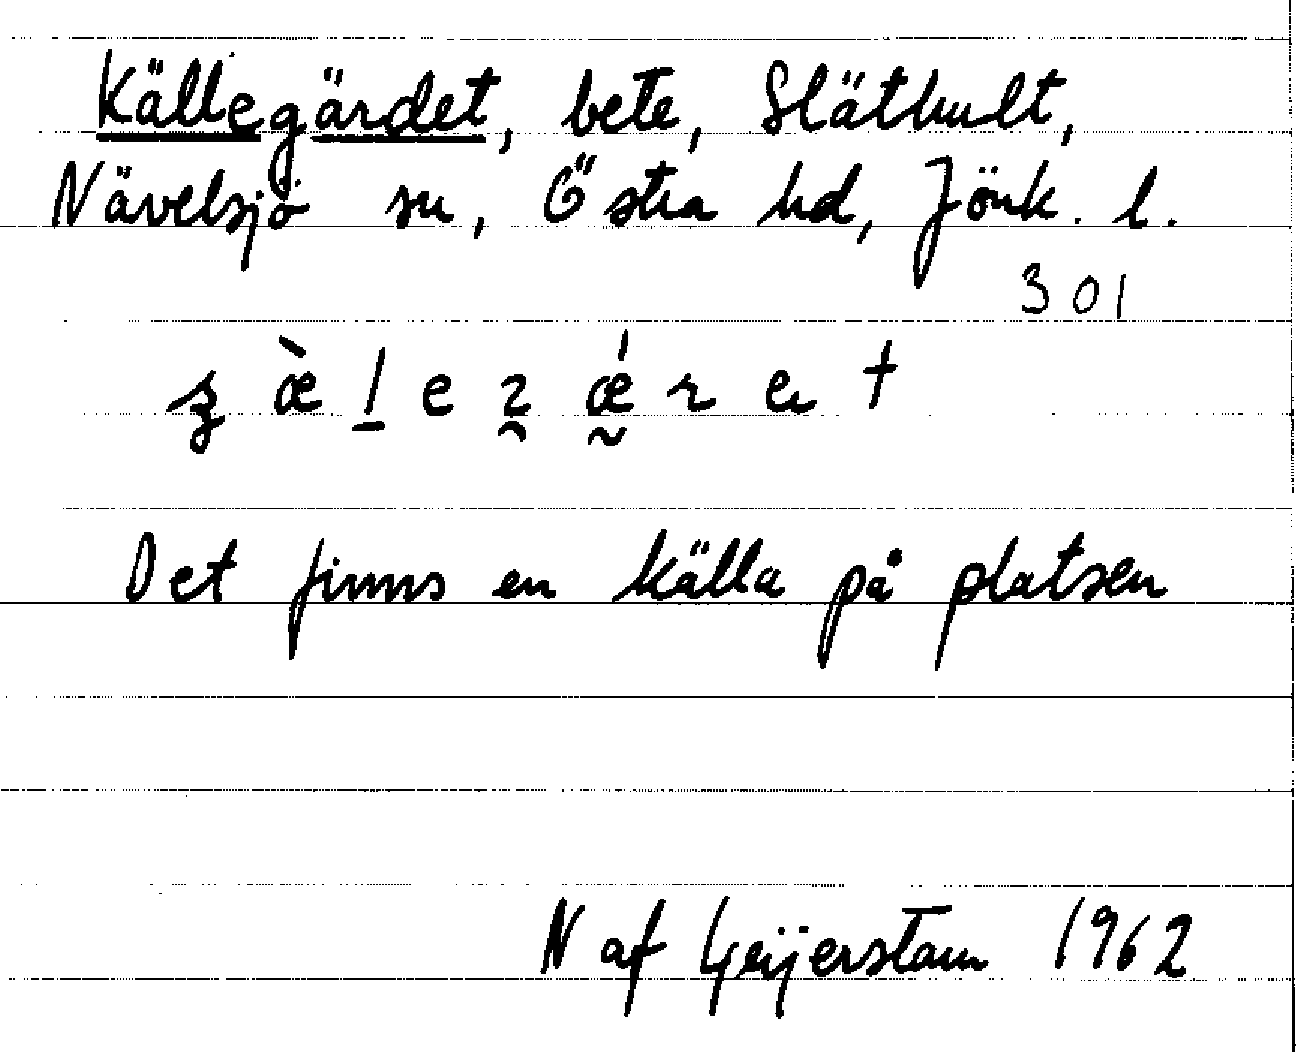 Källegärdet, bete, Släthult,
Nävelsjö sn, Östra hd, Jönk. l.
301
Det finns en källa på platsen
N af Geijerstam 1962